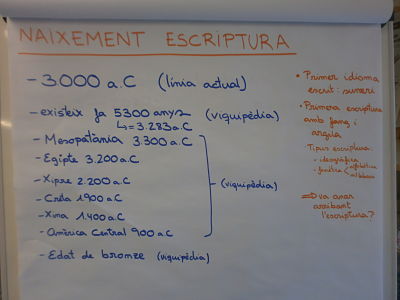 NAIXEMENT ESCRIPTURA
- 3000 a.C (línia actual)
- existeix fa 5300 anys (viquipèdia)
↳ = 3.283 a.C
- Mesopotània 3.300 a.C
- Egipte 3.200 a.C
- Xipre 2.200 a.C
- Creta 1900 a.C
- Xina 1.400 a.C
- Amèrica Central 900 a.C
(viquipèdia)
- Edat de bronze (viquipèdia)
• Primer idioma
escrit: sumeri
• Primera escriptura
amb fang i
argila
Tipus escriptura:
- ideogràfica
- fonètica < alfabètica
⇒ On va anar
arribant
l'escriptura?